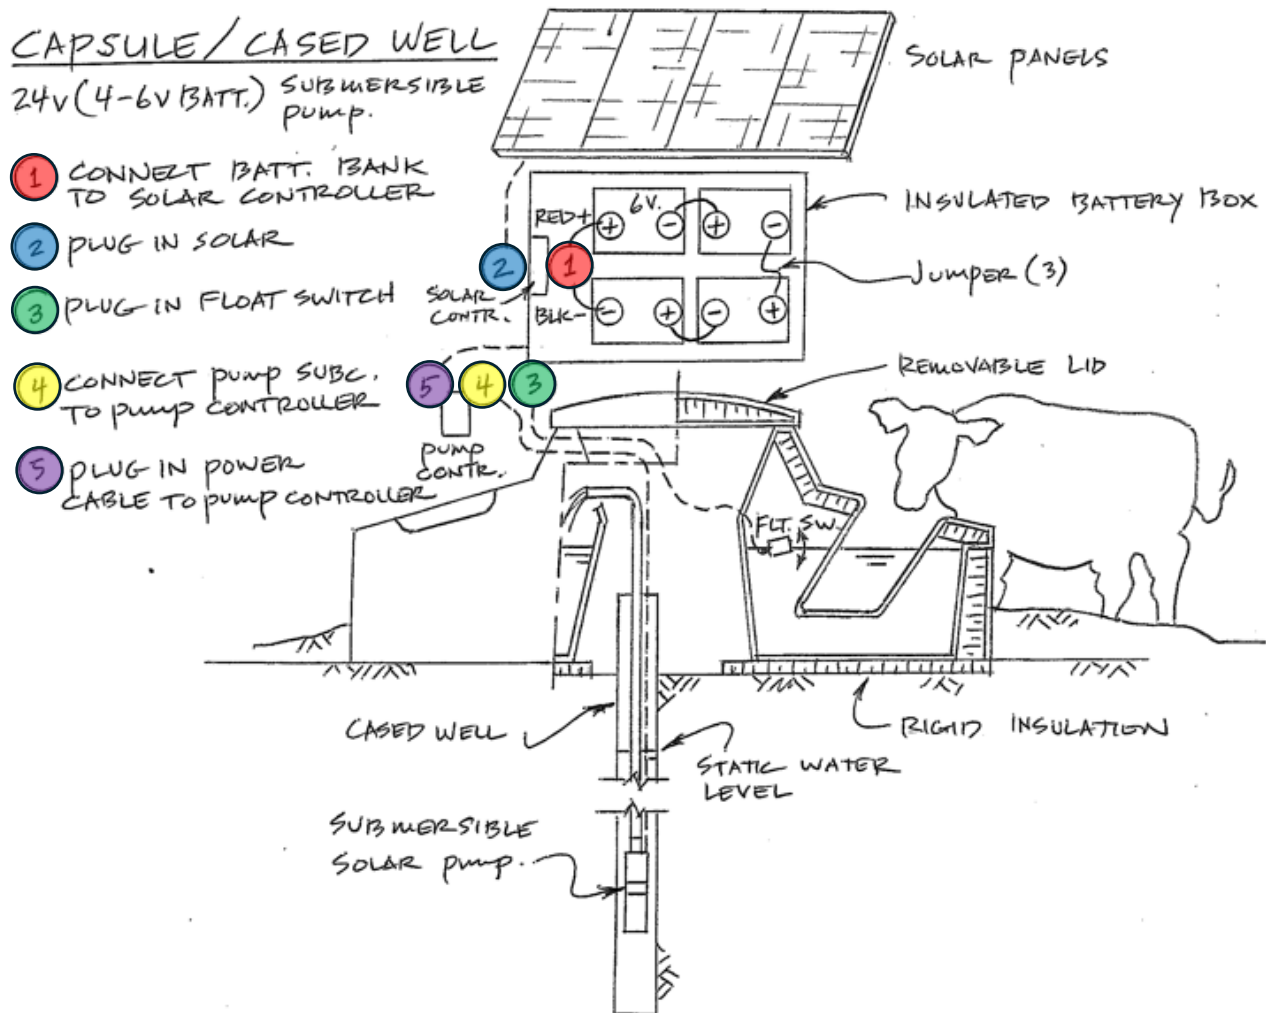 CAPSULE/CASED WELL
24V (4-6V BATT.) SUBMERSIBLE
PUMP.
SOLAR PANELS
1 CONNECT BATT. BANK
TO SOLAR CONTROLLER
2 PLUG IN SOLAR
3 PLUG IN FLOAT SWITCH
4 CONNECT PUMP SUBC.
TO PUMP CONTROLLER
5 PLUG IN POWER
CABLE TO PUMP CONTROLLER
INSULATED BATTERY BOX
RED+
6V.
+ - + -
2
1
JUMPER (3)
SOLAR
CONTR.
BLK-
- + - +
5 4 3
PUMP
CONTR.
REMOVABLE LID
FLT. SW.
CASED WELL
RIGID INSULATION
STATIC WATER
LEVEL
SUBMERSIBLE
SOLAR PUMP.